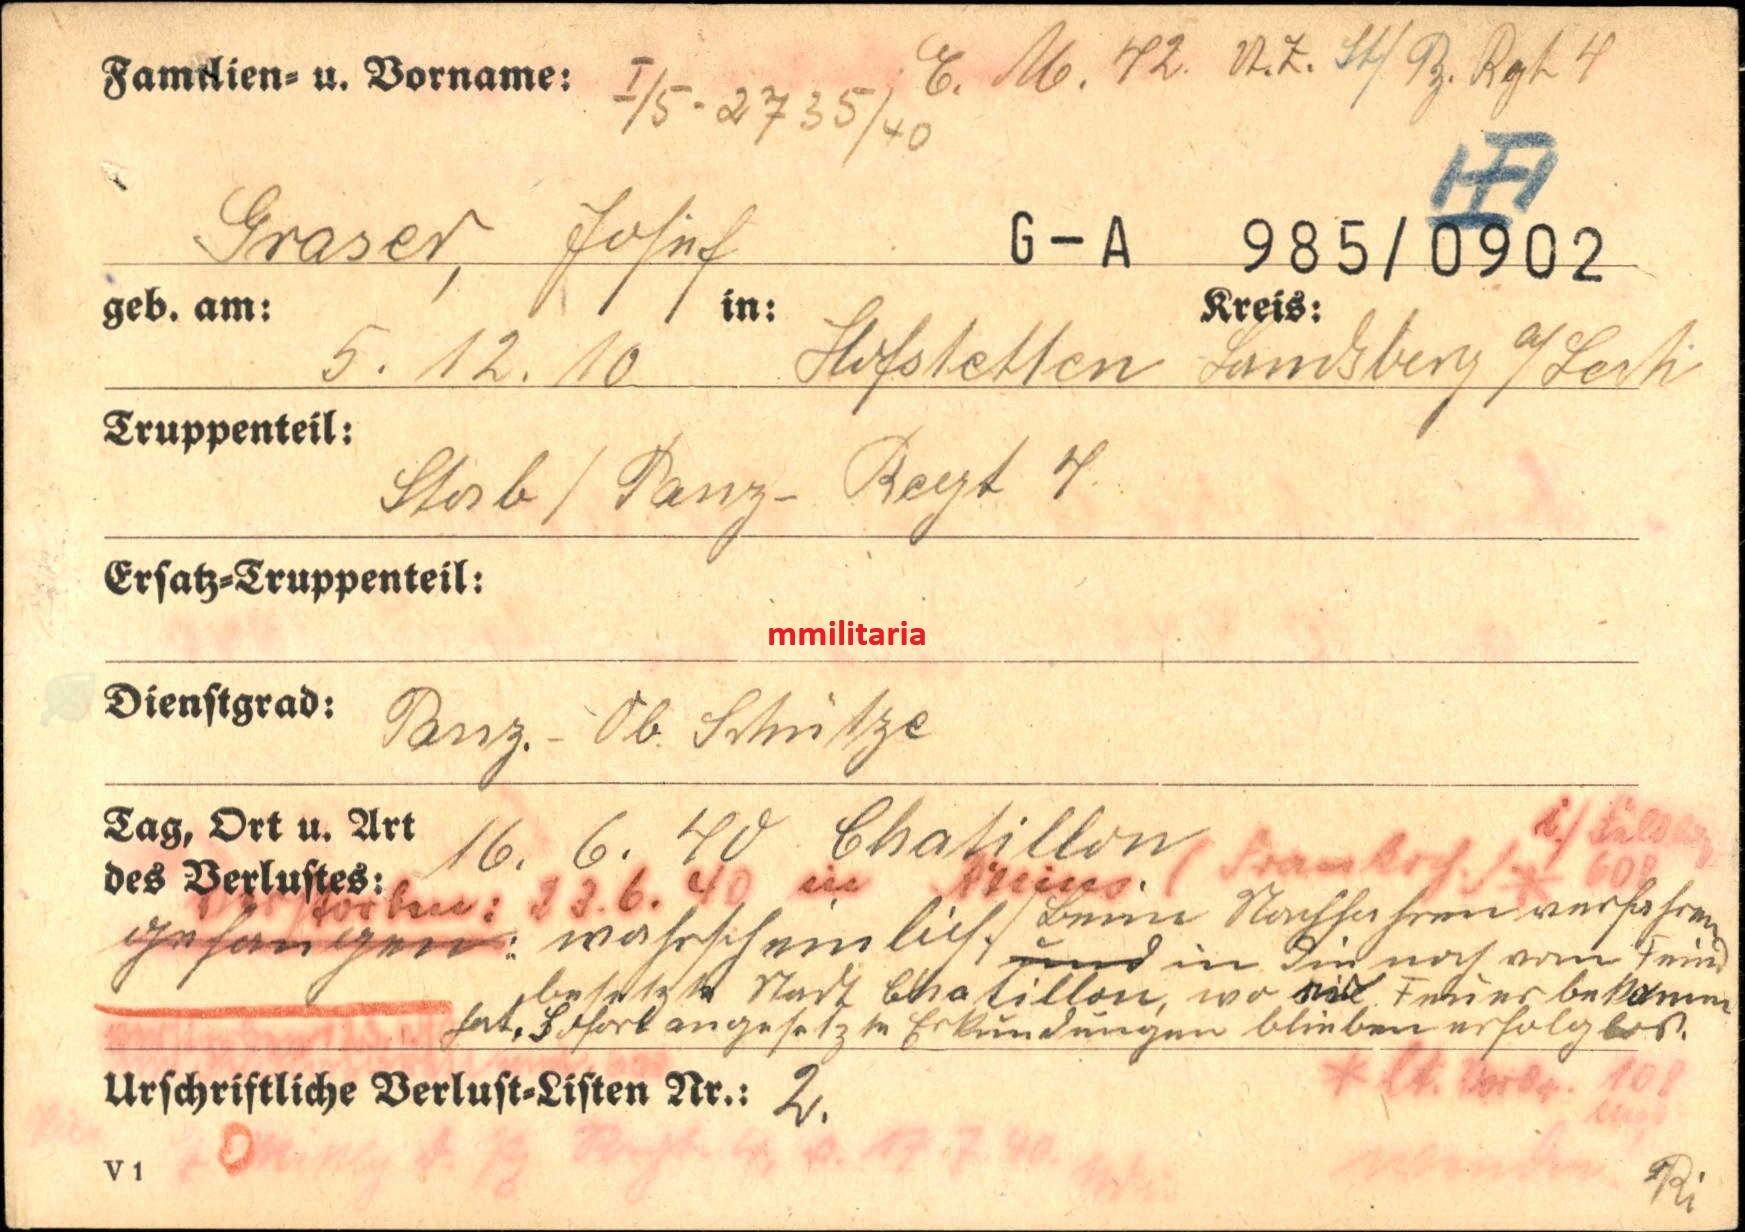 Familien- u. Vorname:
I/5-2735/40
E. M. 42. St/ Pz. Rgt 4
Graser, Josef
G-A 985/0902
geb. am: in: Kreis:
5. 12. 10 Hofstetten Landsberg a/Lech
Truppenteil:
Stab / Panz- Regt 4.
Ersatz-Truppenteil:
mmilitaria
Dienstgrad:
Panz.- Ob. Schütze
Tag, Ort u. Art
des Verlustes:
16. 6. 40 Chatillon
Verstorben: 23.6.40 in Reims. (Frankr.) * 608
gefangen: wahrscheinlich. / Beim Nachfahren verfahren
und in die noch vom Feind
besetzte Stadt Chatillon, wo Feuer bekommen
hat. Sofort angesetzte Erkundungen blieben erfolglos.
Urschriftliche Verlust-Listen Nr.: 2.
* lt. 108
Rgt. 4, v. 17.7.40.
V 1
Ri